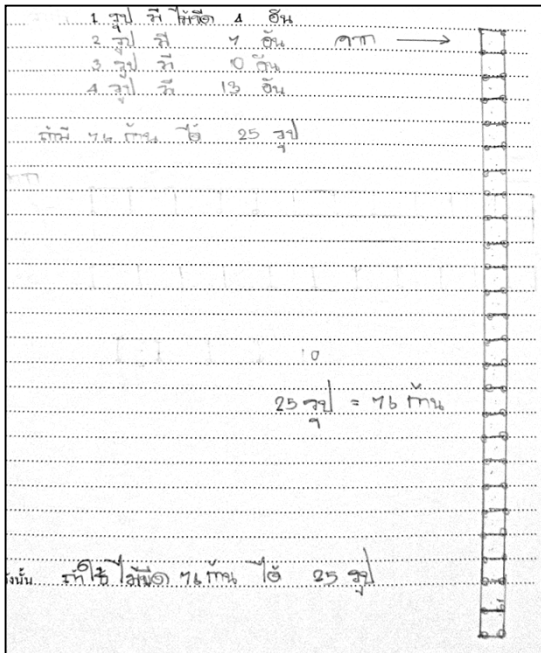 1 รูป มี ไม้ขีด 4 อัน
2 รูป มี 7 อัน จาก →
3 รูป มี 10 อัน
4 รูป มี 13 อัน
ถ้ามี 76 ก้าน ได้ 25 รูป
10
25 รูป = 76 ก้าน
ดังนั้น ถ้าใช้ไม้ขีด 76 ก้าน ได้ 25 รูป